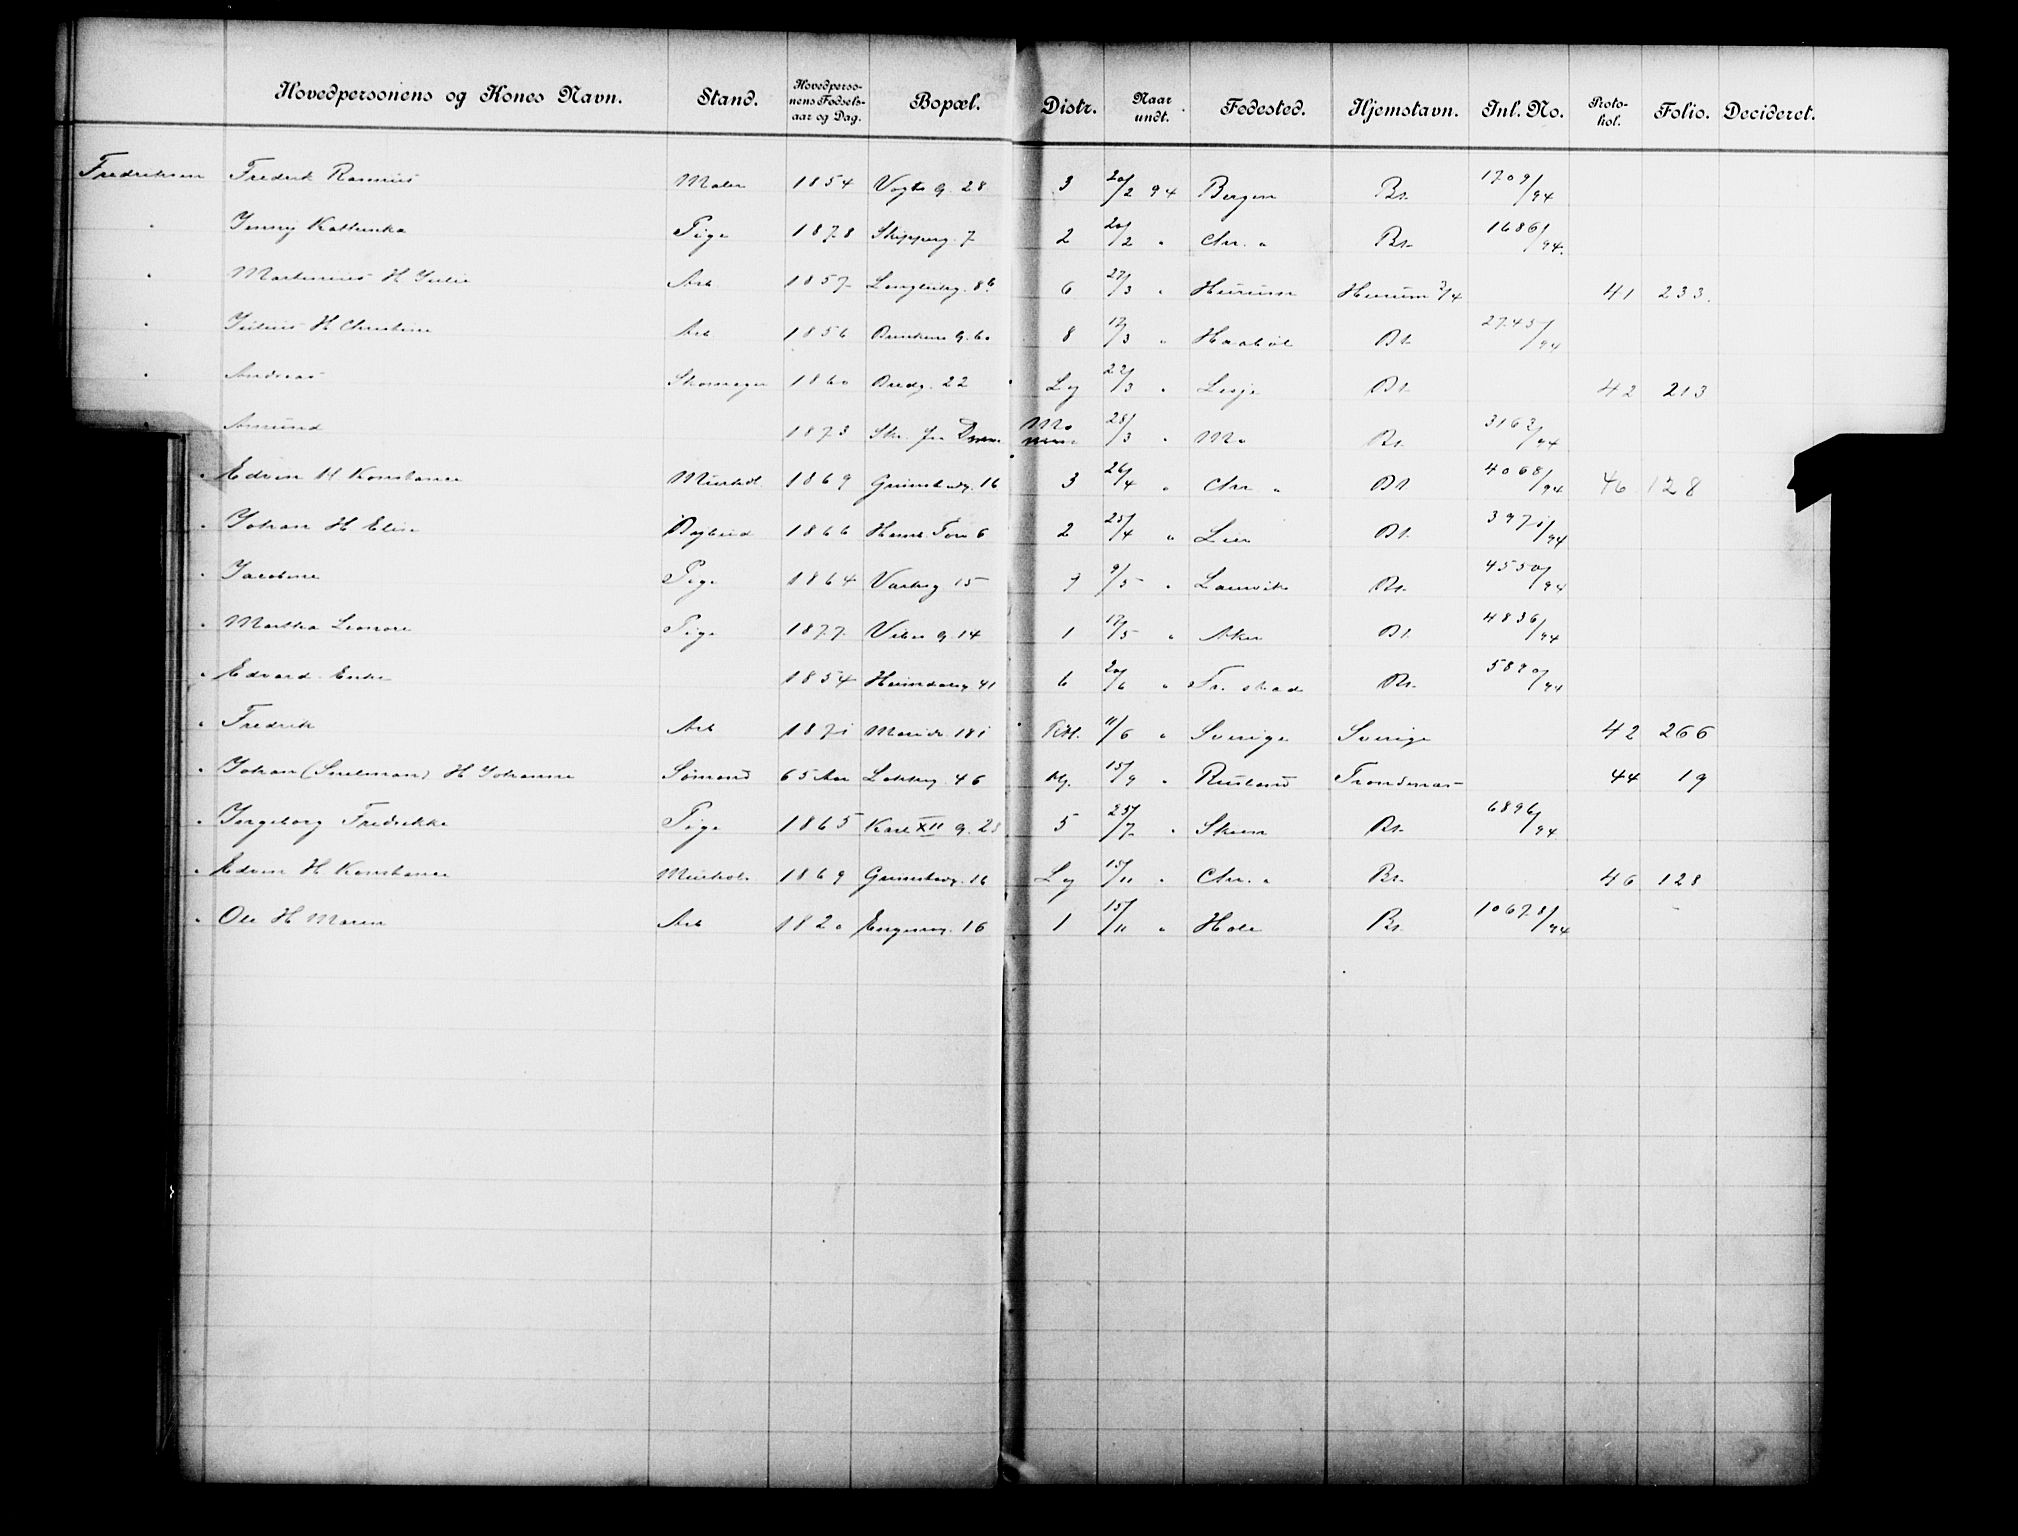 Hovedpersonens og Kones Navn. Stand. Hovedpersonens Fødselsaar og Dag. Bopæl. Distr. Naar undt. Fødested. Hjemstavn. Inl. No. Protokol. Folio. Decideret.
Fredriksen Fredrik Rasmus Maler 1854 Vogts g. 28 3 20/2 94 Bergen Bt. 1709/94
" Jenny Kathinka Pige 1878 Skipperg. 7 2 20/2 " Chr. a Bt. 1686/94.
" Martinius H Julie Arb 1857 6 27/3 " Hurum Hurum 3/4 41 233.
" Julius H Christine Arb 1856 8 17/3 " Haabøl Bt. 2745/94
" Andreas Skomager 1860 Bredg. 22 Ly 22/3 " Lesje Bt. 42 213
Amund 1873 28/3 " Mo Bt. 3162/94
" Edvin H Konstance 1869 Grønlandg. 16 3 26/4 " Chr. a Bt 4068/94 46 128
" Johan H Elise 1866 Hamb. Torv 6 2 25/4 " Lier Bt. 3971/94
" Jacobine Pige 1864 15 7 9/5 " Laurvik Bt. 4550/94
" Martha Leonore Pige 1877 Vibes g. 14 1 17/5 " Aker Bt. 4836/94
" Edvard 1854 Heimdalsg. 41 6 20/6 " Fr. stad Bt. 5890/94
" Fredrik Arb 1871 Marid. 181 11/6 " Sverige Sverige 42 266
" Johan H Johanne Sømand 65 Aar Lakkeg. 46 15/9 " Rusland Trondenæs 44 19
" Ingeborg Fredrikke Pige 1865 Karl XII g. 23 5 25/7 " Skien Bt. 6896/94
" Edvin H Konstance 1869 Grønlandg. 16 Ly 15/11 " Chr. a Bt. 46 128
" Ole H Maren Arb 1820 Enggaveg. 16 1 15/11 " Hole Bt. 10678/94